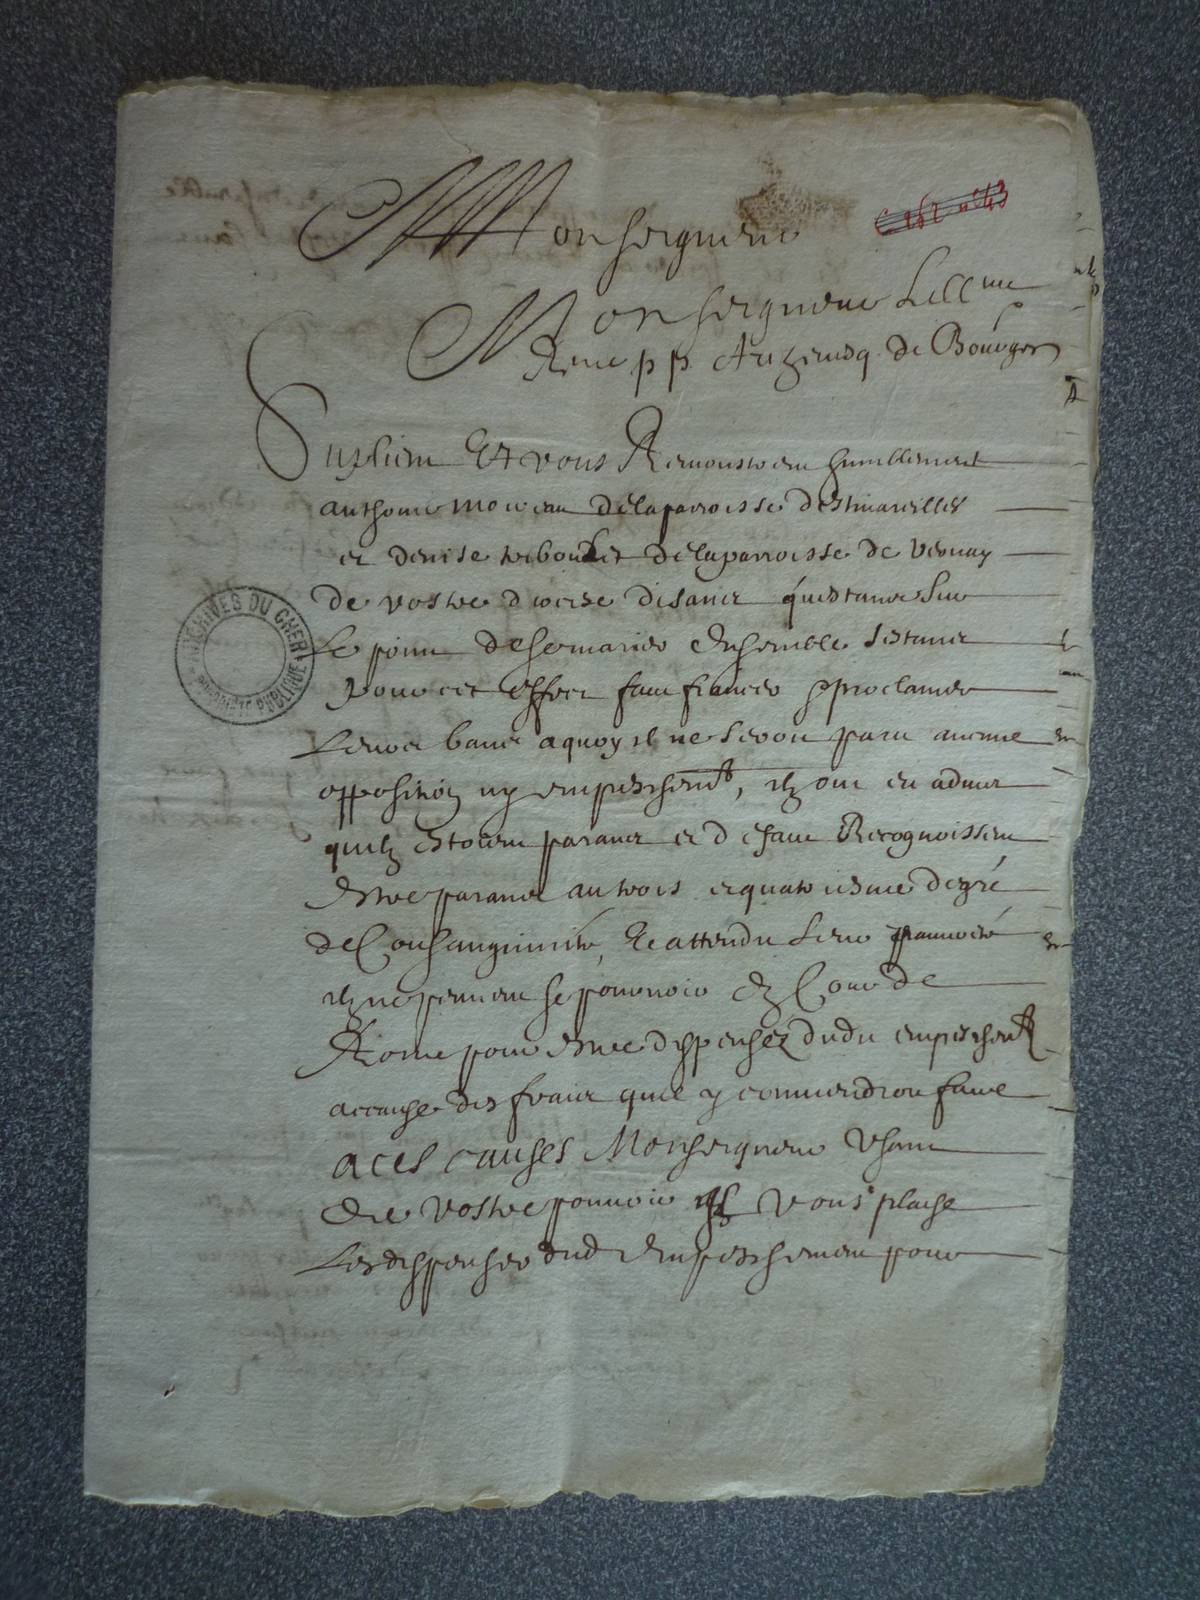 Monseigneur
Monseigneur Lill me
Rme pp Archevesq de Bourges
Suplient Et vous Remonstrent humblement
anthoine moreau de la parroisse destivareilles
et denise de la parroisse de Vernay
de vostre diocese disant questant sur
Le point de se marier Ensemble sestant
pour cet Effect faict fiancer & proclamer
Leurs bancs a quoy il ne seroit paru aucune
opposition ny empeschemt, ilz ont eu advis
quilz Estoient parans et de faict Recognoissent
Estre parans au trois et quatriesme degré
de Consanguinité, Et attendu Leur pauvreté
ilz ne peuvent se pourvoir En Cour de
Rome pour Estre dispensez dudit empeschemt
a cause des fraicts quil y conviendroit faire
a ces causes Monseigneur Usant
de vostre pouvoir il Vous plaise
Les dispenser dud Empeschement pour
ARCHIVES DU CHER
PROPRIÉTÉ PUBLIQUE